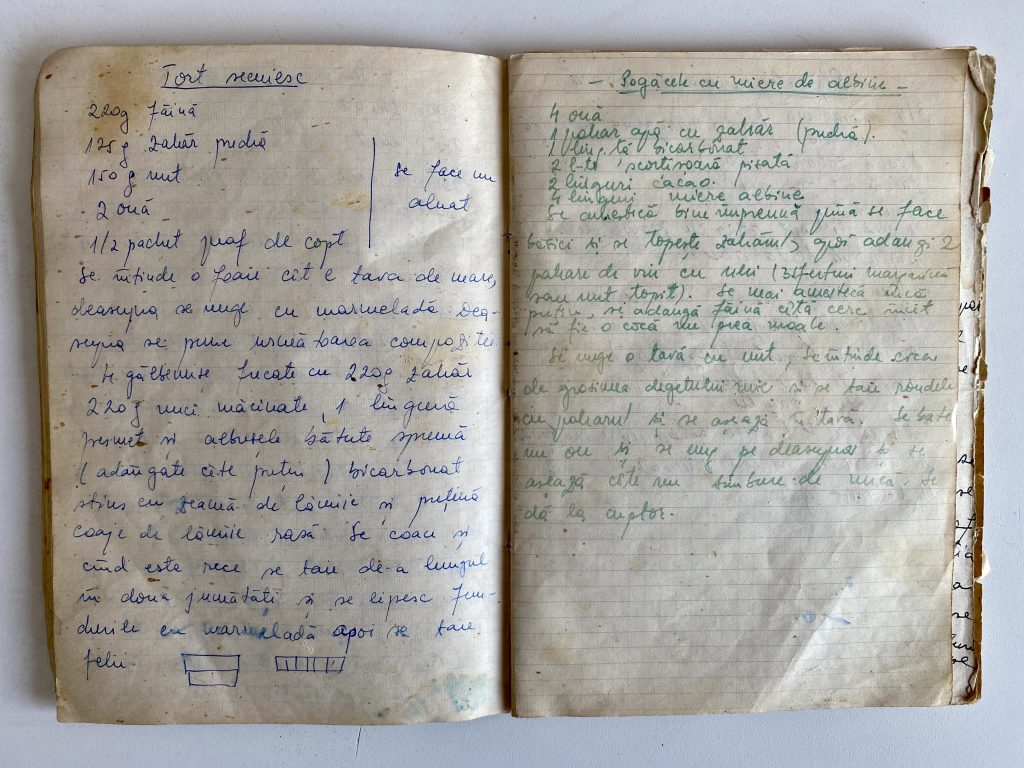 Tort
220g făină
125g zahăr pudră
150 g unt
2 ouă
1/2 pachet praf de copt
Se face un
aluat
Se întinde o foaie cît e tava de mare,
deasupra se unge cu marmeladă. Dea-
supra se pune următoarea compoziție
gălbenușe frecate cu 220g zahăr
220g nuci măcinate, 1 lingură
pesmet și albușele bătute spumă
(adăugate cîte puțin) bicarbonat
stins cu zeamă de lămîie și puțină
coaje de lămîie rasă. Se coace și
cînd este rece se taie de-a lungul
în două jumătăți și se lipesc fun-
durile cu marmeladă apoi se taie
felii.
- Pogăcele cu miere de albine -
4 ouă
1 pahar apă cu zahăr (pudră).
1 ling-ță bicarbonat
2 l-țe scorțișoară pisată
2 linguri cacao.
4 linguri miere albine
Se amestică bine împreună pînă se face
bășici și se topește zahărul, apoi adaugi 2
pahare de vin cu ulei (sferturi margarină
sau unt topit). Se mai amestică încă
puțin, se adaugă făină cîtă cere încît
să fie o cocă nu prea moale.
Se unge o tavă cu unt, se întinde coca
de grosimea degetului mic și se taie rondele
cu paharul și se așează în tavă. Se bate
un ou și se ung pe deasupra și se
așează cîte un sîmbure de nucă. Se
dă la cuptor.